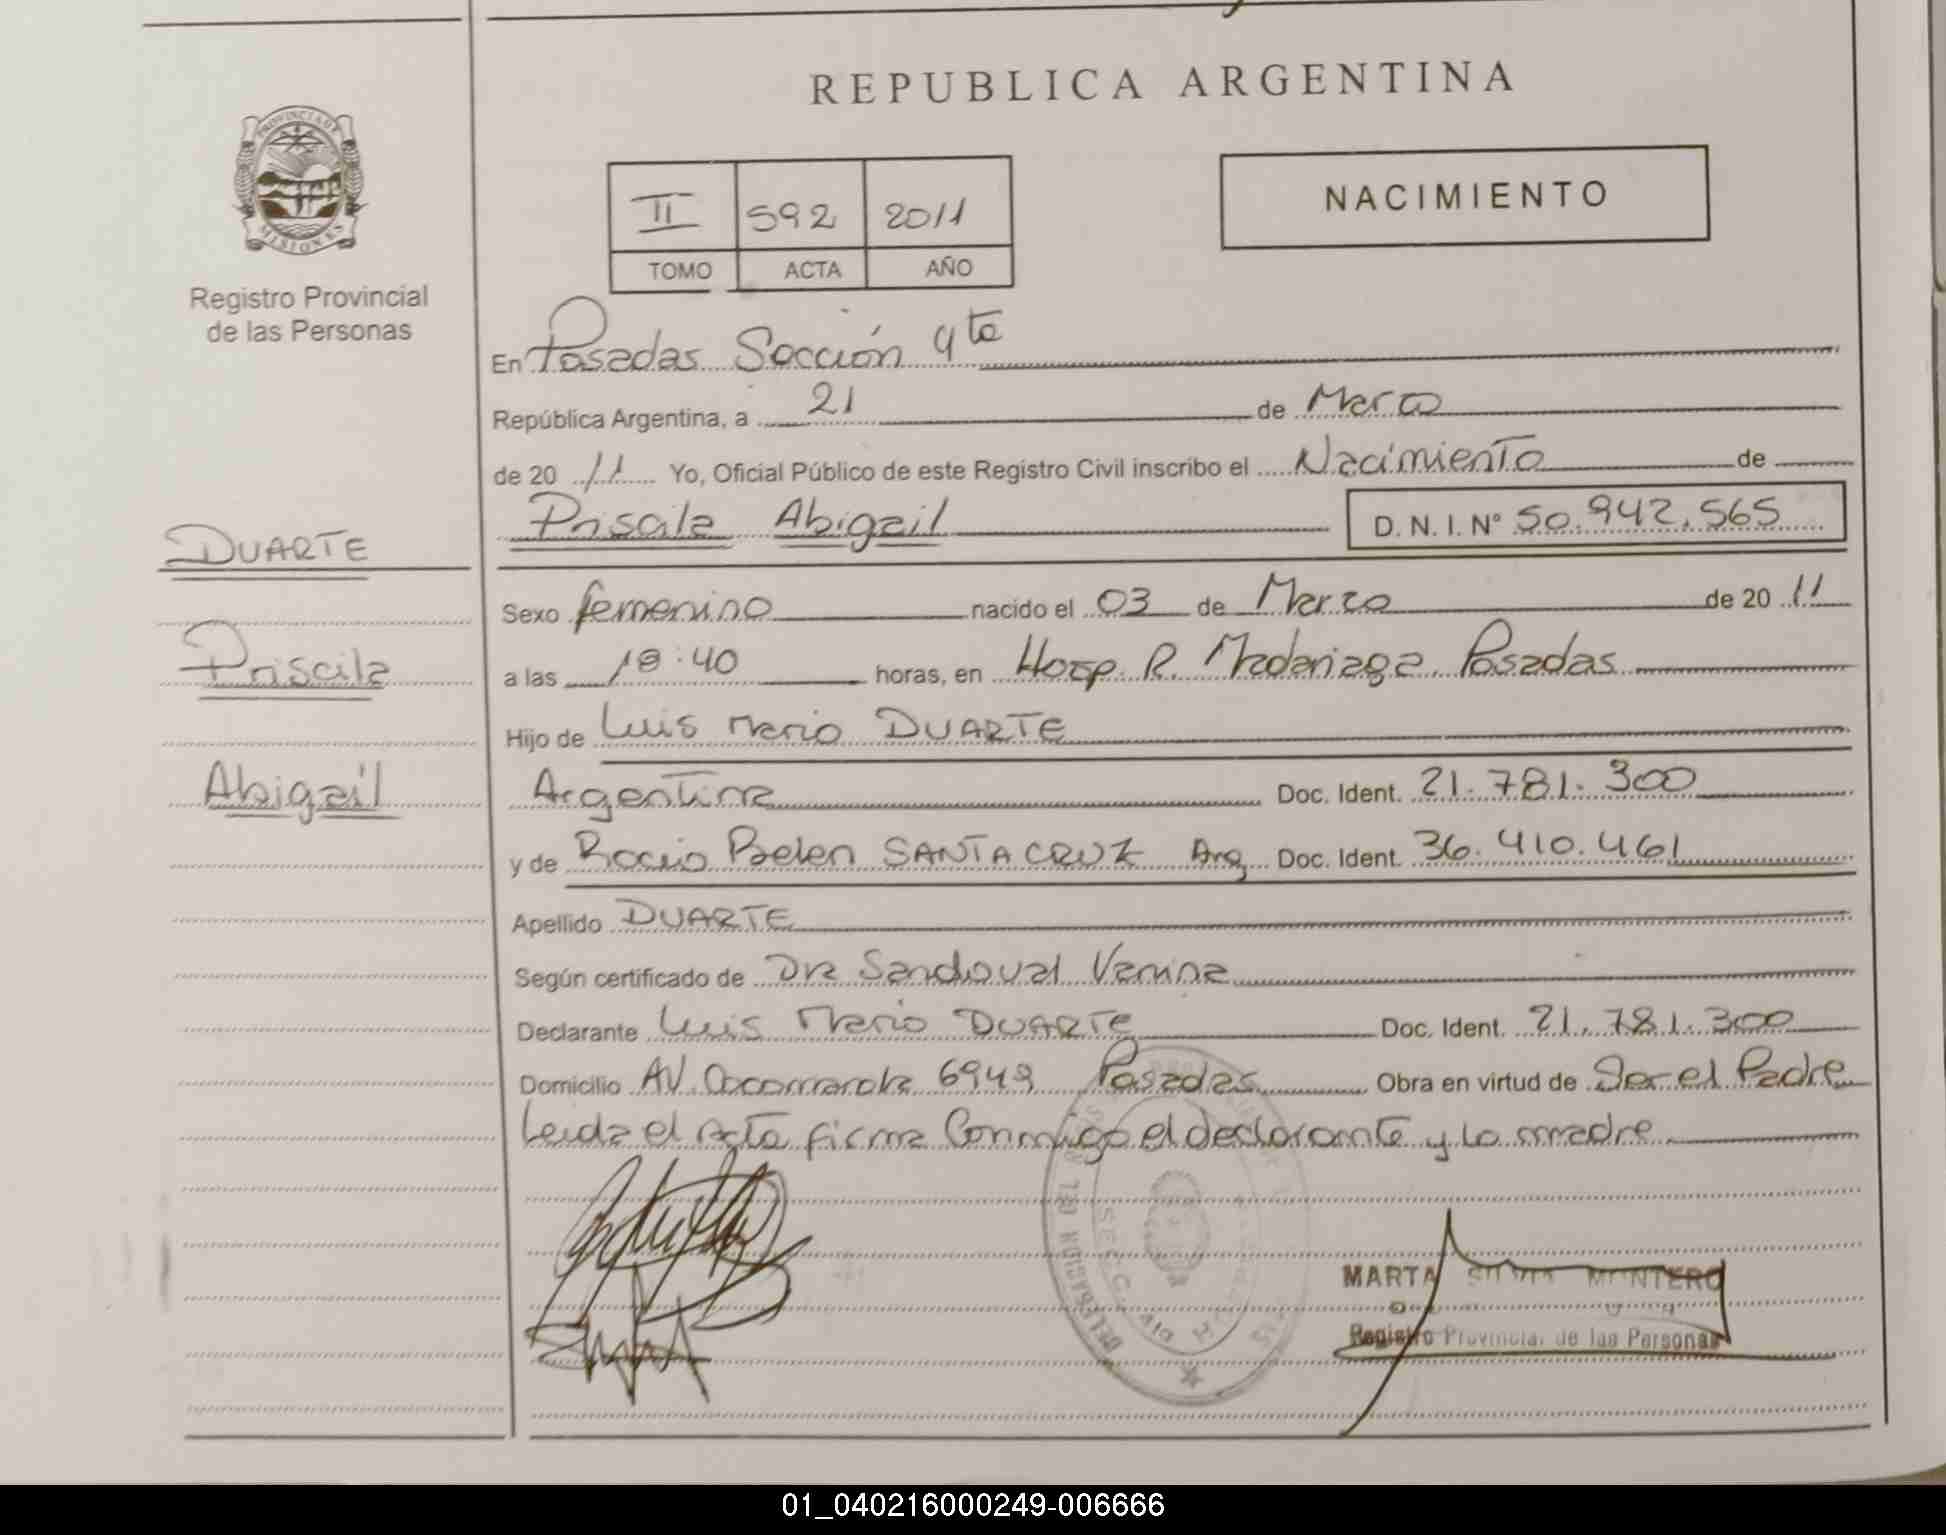 REPUBLICA ARGENTINA
PROVINCIA DE
MISIONES
Registro Provincial
de las Personas
II 592 2011
TOMO ACTA AÑO
NACIMIENTO
En Posadas Sección 4ta
República Argentina, a 21 de Marzo
de 20 11 Yo, Oficial Público de este Registro Civil inscribo el Nacimiento de
Priscila Abigail D. N. I. N° 50.942.565
DUARTE
Priscila
Abigail
Sexo femenino nacido el 03 de Marzo de 20 11
a las 18:40 horas, en Hosp. R. Madariaga Posadas
Hijo de Luis Mario DUARTE
Argentina Doc. Ident. 21.781.300
y de Rocio Belen SANTA CRUZ Arg Doc. Ident. 36.410.461
Apellido DUARTE
Según certificado de Dra Sandoval Vanina
Declarante Luis Mario DUARTE Doc. Ident. 21.781.300
Domicilio AV. Cocomarola 6949 Posadas Obra en virtud de Ser el Padre
Leida el Acta firma Conmigo el declarante y la madre
MARTA SILVIA MONTERO
Registro Provincial de las Personas
01_040216000249-006666